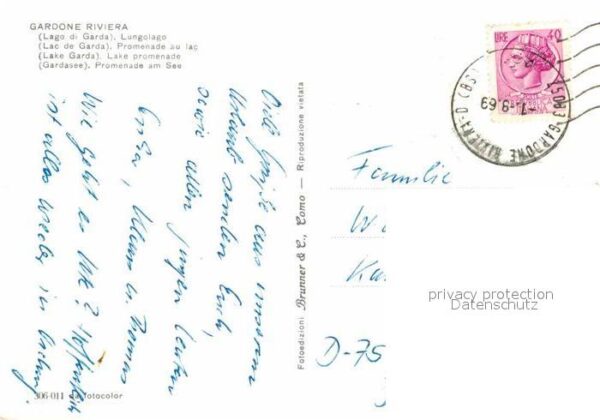 GARDONE RIVIERA
(Lago di Garda). Lungolago
(Lac de Garda). Promenade au lac
(Lake Garda). Lake promenade
(Gardasee). Promenade am See
LIRE 40
25083 GARDONE RIVIERA (BS)
-7.-9.69
Viele Grüße aus unserem
Urlaub senden Euch,
sowie allen jungen Leuten
Klaus u.
Wie geht es Ute? Hoffentlich
ist alles wieder in Ordnung
Fotoedizioni Brunner & C., Como — Riproduzione vietata
Familie
W
Ka
D-75
privacy protection
Datenschutz
306-011 da fotocolor